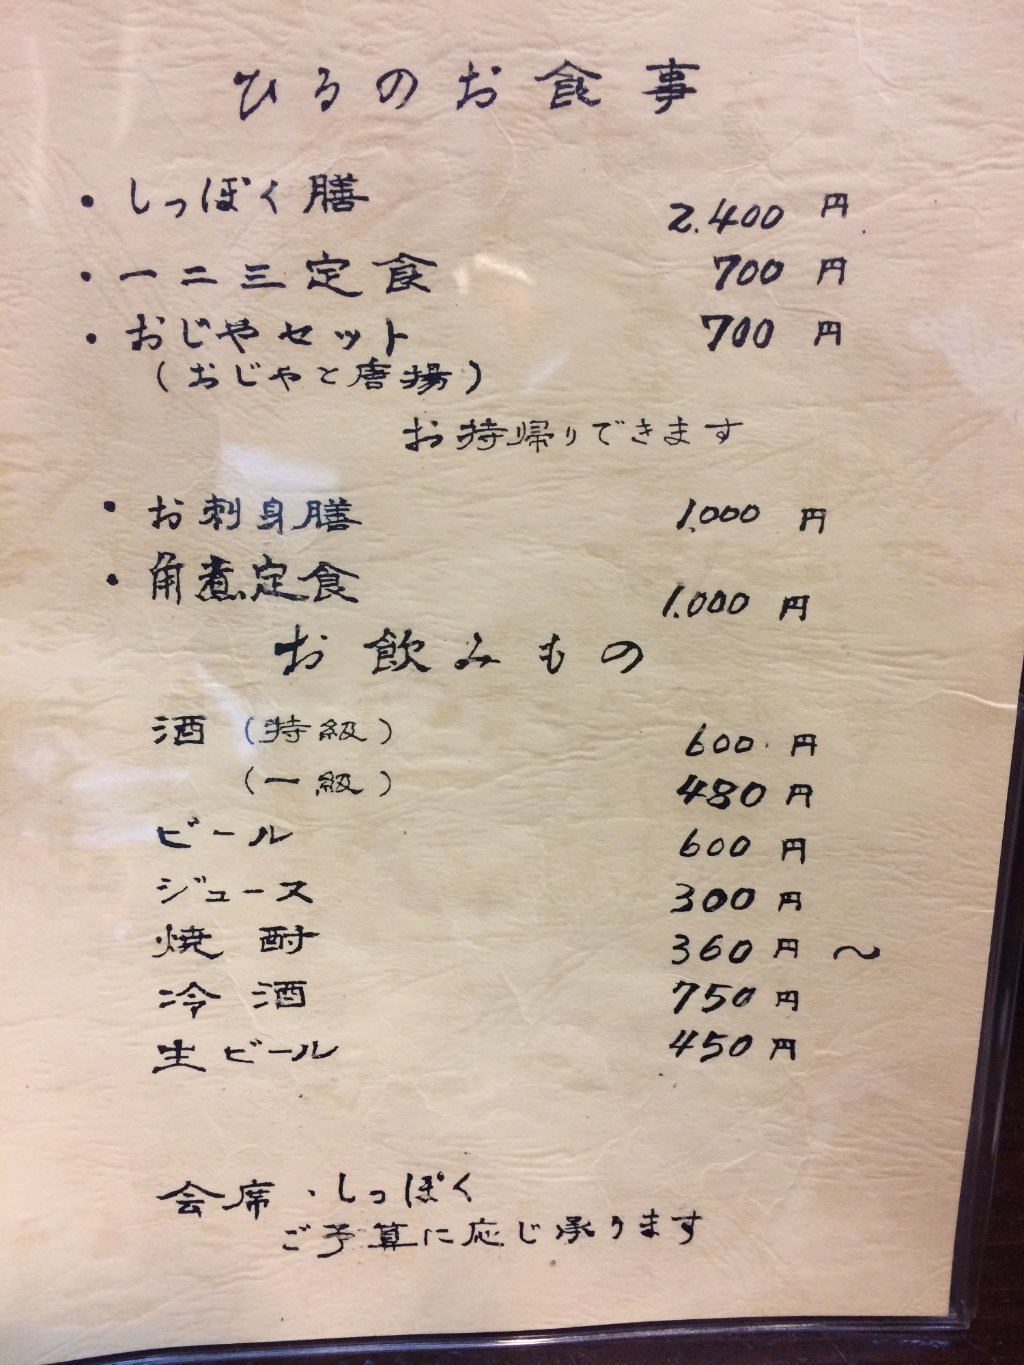 ひるのお食事
・しっぽく膳 2.400円
・一二三定食 700円
・おじやセット 700円
(おじやと唐揚)
お持帰りできます
・お刺身膳 1.000円
・角煮定食 1.000円
お飲みもの
酒(特級) 600円
(一級) 480円
ビール 600円
ジュース 300円
焼酎 360円〜
冷酒 750円
生ビール 450円
会席・しっぽく
ご予算に応じ承ります